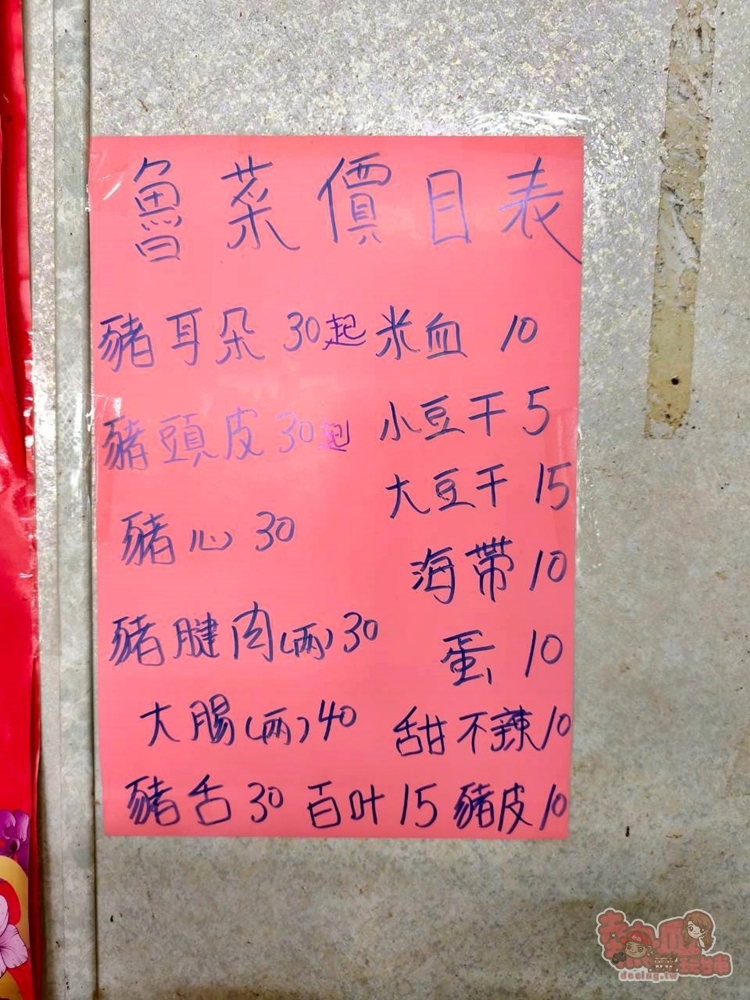 魯菜價目表
豬耳朵 30起
豬頭皮 30起
豬心 30
豬腱肉(兩)30
大腸(兩)40
豬舌 30
米血 10
小豆干 5
大豆干 15
海帶 10
蛋 10
甜不辣 10
百叶 15
豬皮 10
deeing.tw